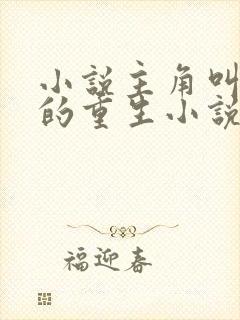 小说主角叫
的重生小说
福迎春